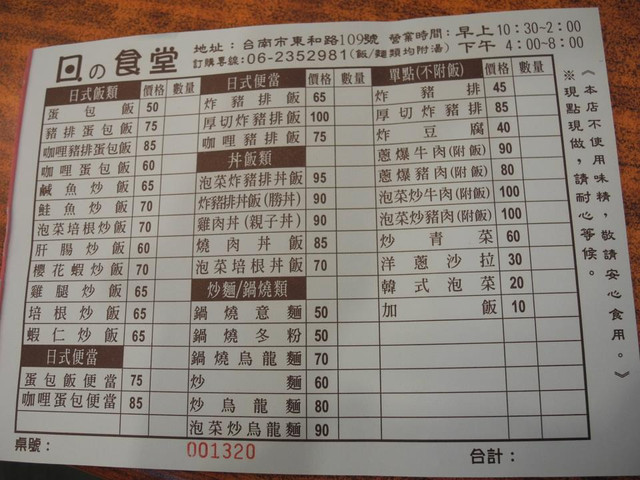 日の食堂
地址：台南市東和路109號 營業時間：早上10：30~2：00
訂購專線：06-2352981(飯/麵類均附湯) 下午 4：00~8：00
日式飯類 價格 數量
蛋包飯 50
豬排蛋包飯 75
咖哩豬排蛋包飯 85
咖哩蛋包飯 60
鹹魚炒飯 65
鮭魚炒飯 70
泡菜培根炒飯 70
肝腸炒飯 60
櫻花蝦炒飯 70
雞腿炒飯 65
培根炒飯 65
蝦仁炒飯 65
日式便當
蛋包飯便當 75
咖哩蛋包便當 85
日式便當 價格 數量
炸豬排飯 65
厚切炸豬排飯 100
咖哩豬排飯 75
丼飯類
泡菜炸豬排丼飯 95
炸豬排丼飯(勝丼) 90
雞肉丼飯(親子丼) 90
燒肉丼飯 85
泡菜培根丼飯 70
炒麵/鍋燒類
鍋燒意麵 50
鍋燒冬粉 50
鍋燒烏龍麵 70
炒麵 60
炒烏龍麵 80
泡菜炒烏龍麵 90
單點(不附飯) 價格 數量
炸豬排 45
厚切炸豬排 85
炸豆腐 40
蔥爆牛肉(附飯) 90
蔥爆豬肉(附飯) 80
泡菜炒牛肉(附飯) 100
泡菜炒豬肉(附飯) 100
炒青菜 60
洋蔥沙拉 30
韓式泡菜 20
加飯 10
《本店不使用味精，敬請安心食用。》
※現點現做，請耐心等候。
桌號： 001320 合計：